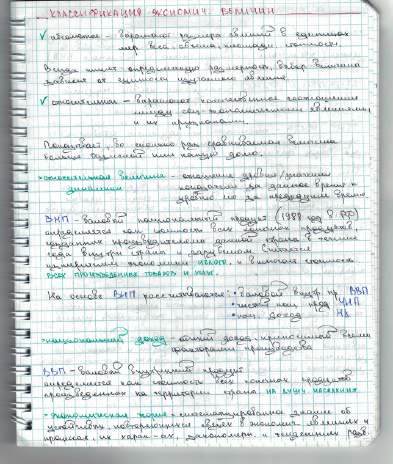 КЛАССИФИКАЦИЯ ЭКОНОМИЧ. ВЕЛИЧИН
абсолютные - выражают размеры явлений в единицах
мер веса, объема, площади, стоимость.
Всегда имеет определенную размерность, выбор величины
зависит от единости изучаемого явления.
относительные - выражают количественное соотношение
между соц-экономическими явлениями,
и их признаками.
Показывает, во сколько раз сравниваемая величина
больше базисной или какую долю.
относительная величина динамики - отношение уровня/значения
показателя за данное время к
уровню его за предыдущее время.
ВНП - валовый национальный продукт (1988 год в РФ)
определяется как ценность всех конечных продуктов,
созданных производителями данной страны в течение
года внутри страны и за рубежом. Считается
измерением экономики целого, и включает стоимость
ВСЕХ ПРОИЗВЕДЕННЫХ ТОВАРОВ И УСЛУГ.
На основе ВНП рассчитывают: • валовый внутр. пр ВВП
• чистый нац. прод ЧНП
• нац. доход НД
национальный доход - общий доход, приносимый всеми
факторами производства
ВВП - валовый внутренний продукт
определяется как стоимость всех конечных продуктов
произведенных на территории страны НА ДУШУ НАСЕЛЕНИЯ
экономическая теория - систематизированное знание об
устойчивых, повторяющихся связях в экономич. явлениях и
процессах, их харак-ах, закономерн. и тенденциях разв.